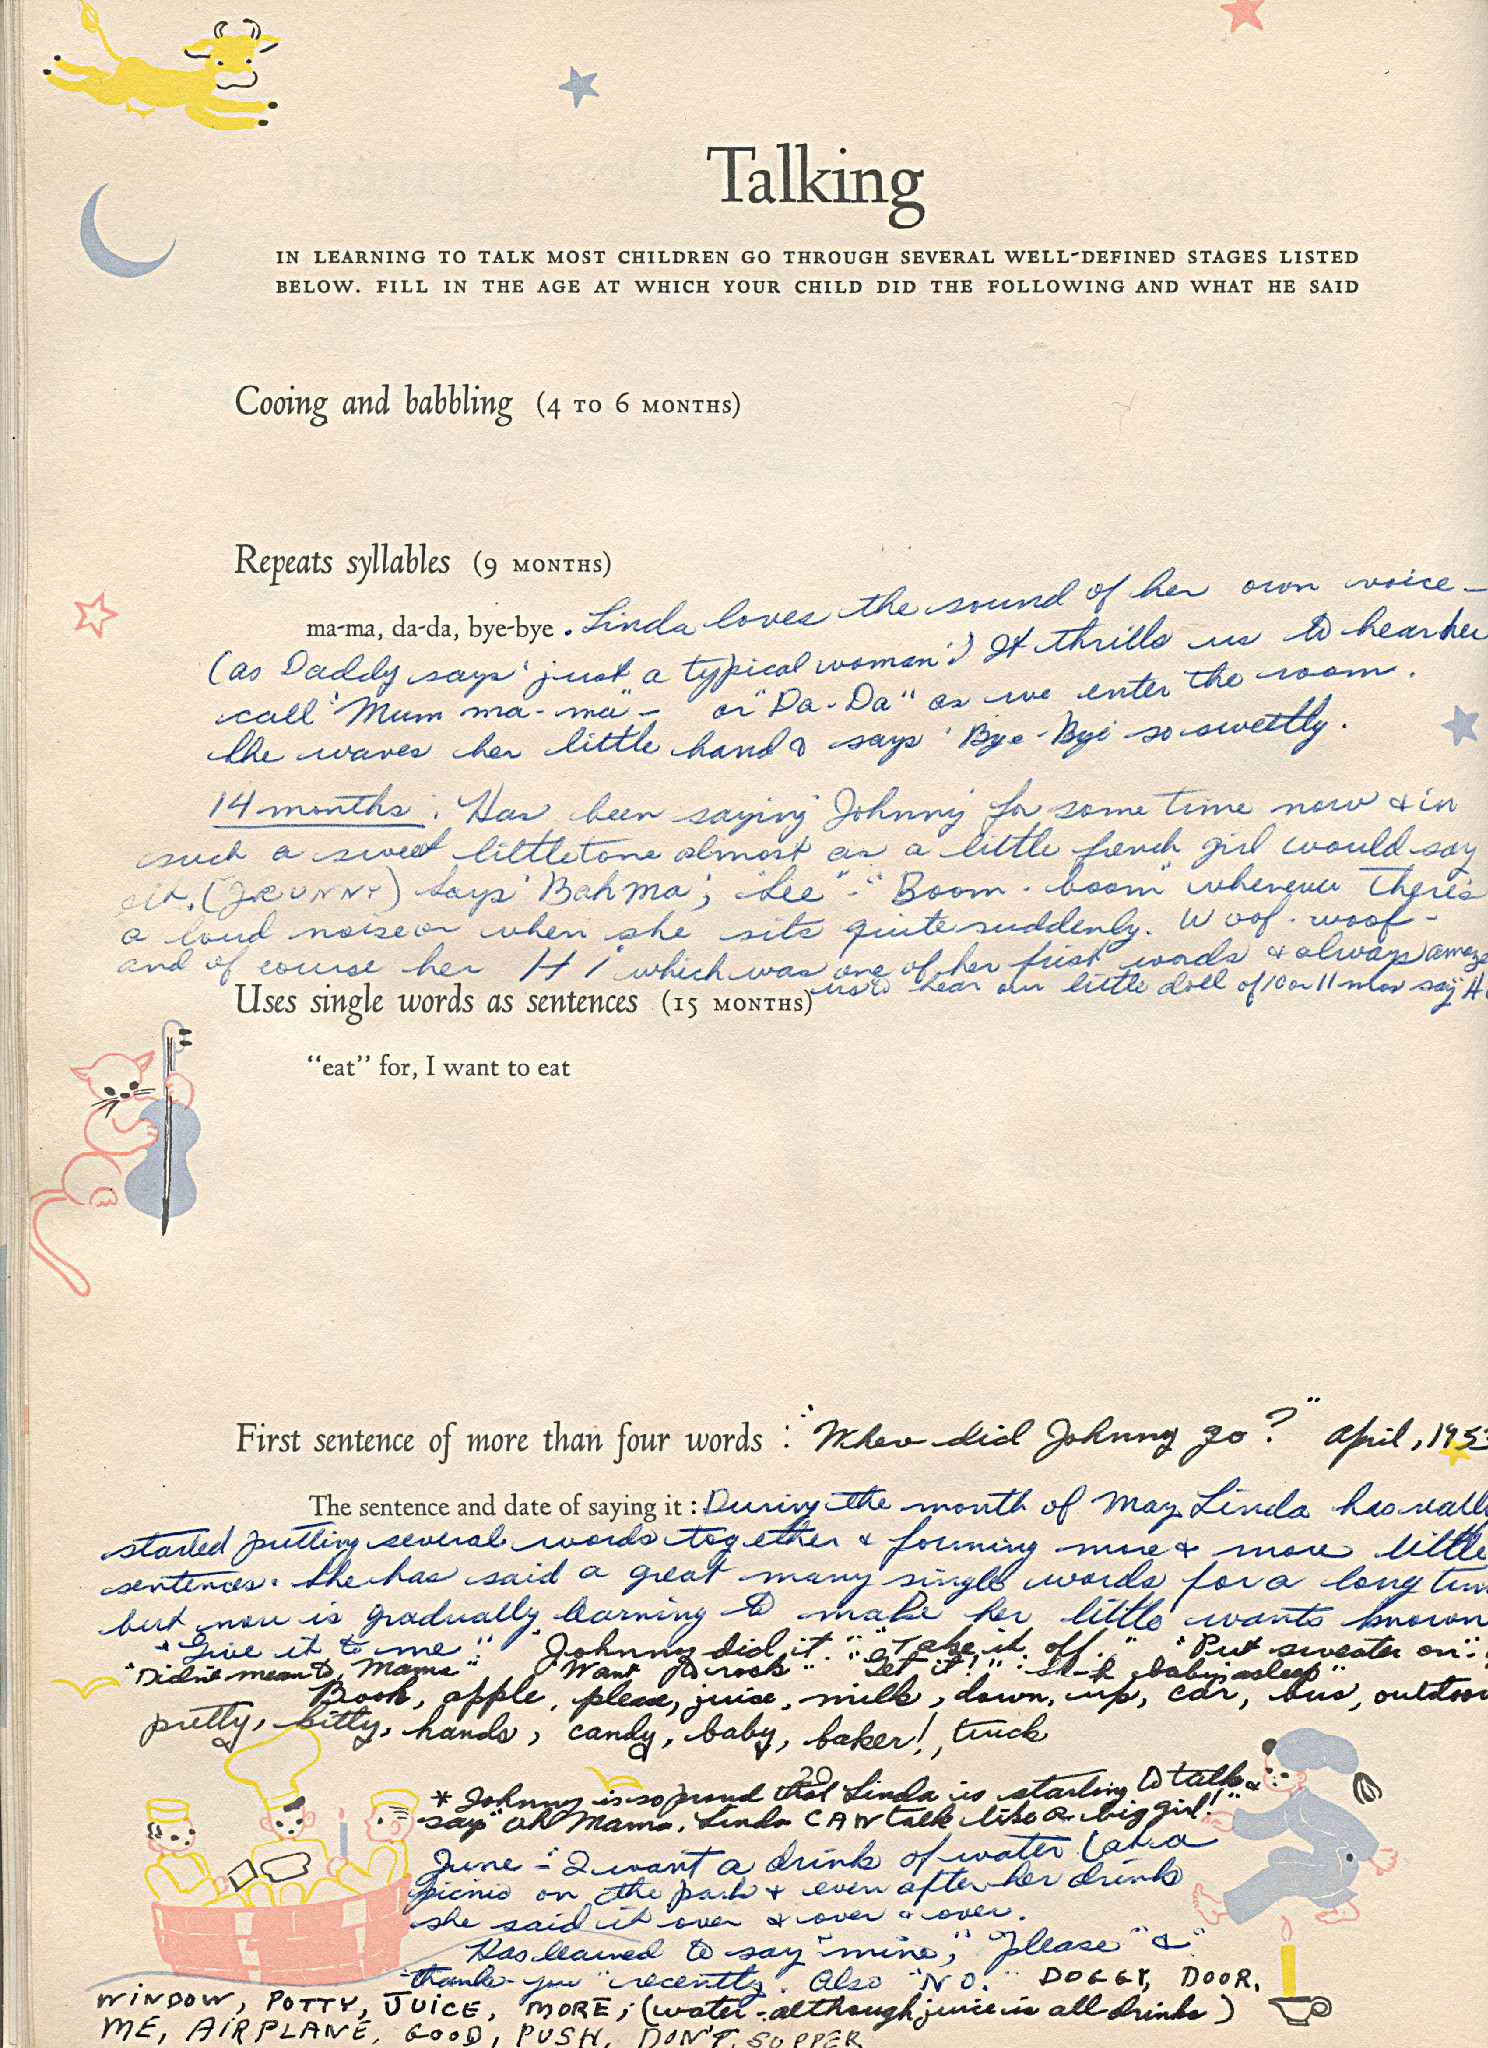 Talking
IN LEARNING TO TALK MOST CHILDREN GO THROUGH SEVERAL WELL-DEFINED STAGES LISTED
BELOW. FILL IN THE AGE AT WHICH YOUR CHILD DID THE FOLLOWING AND WHAT HE SAID
Cooing and babbling (4 TO 6 MONTHS)
Repeats syllables (9 MONTHS)
ma-ma, da-da, bye-bye. Linda loves the sound of her own voice -
(as Daddy says 'just a typical woman'!) It thrills us to hear her
call "Mum ma-ma" - or "Da-Da" as we enter the room.
She waves her little hand & says 'Bye-Bye' so sweetly.
14 months: Has been saying 'Johnny' for some time now & in
such a sweet little tone almost as a little french girl would say
it. Says 'Bah Ma', "See" - "Boom-boom" whenever there's
a loud noise or when she sits quite suddenly. Woof-woof -
and of course her Hi which was one of her first words & always amazed
us to hear our little doll of 10 or 11 mos say "Hi
Uses single words as sentences (15 MONTHS)
"eat" for, I want to eat
First sentence of more than four words : "Where did Johnny go?" April, 1953
The sentence and date of saying it : During the month of May Linda has really
started putting several words together & forming more & more little
sentences. She has said a great many single words for a long time
but now is gradually learning to make her little wants known
"Give it to me." "Johnny did it." "Take it off." "Put sweater on".
"Didn't mean to, Mama" "Want to rock" "Get it!" "Sh-h baby asleep"
Book, apple, please, juice, milk, down, up, car, bus, outdoor
pretty, kitty, hands, candy, baby, baker!, truck
20
* Johnny is so proud that Linda is starting to talk &
say "Oh Mama, Linda CAN talk like a big girl!"
June - "I want a drink of water (at a
picnic on the park & even after her drink
she said it over & over & over.
Has learned to say "mine," "please" &
"thank-you" recently. Also "NO." DOGGY, DOOR,
WINDOW, POTTY, JUICE, MORE, (water - although juice is all drinks)
ME, AIRPLANE, GOOD, PUSH, DON'T, SUPPER